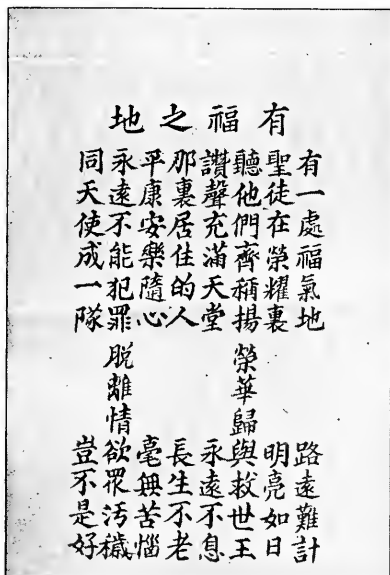 有福之地
有一處福氣地 路遠難計
聖徒在榮耀裏 明亮如日
聽他們齊稱揚 榮華歸與救世王
讚聲充滿天堂 永遠不息
那裏居住的人 長生不老
平康安樂隨心 毫無苦惱
永遠不能犯罪 脫離情欲眾汚穢
同天使成一隊 豈不是好